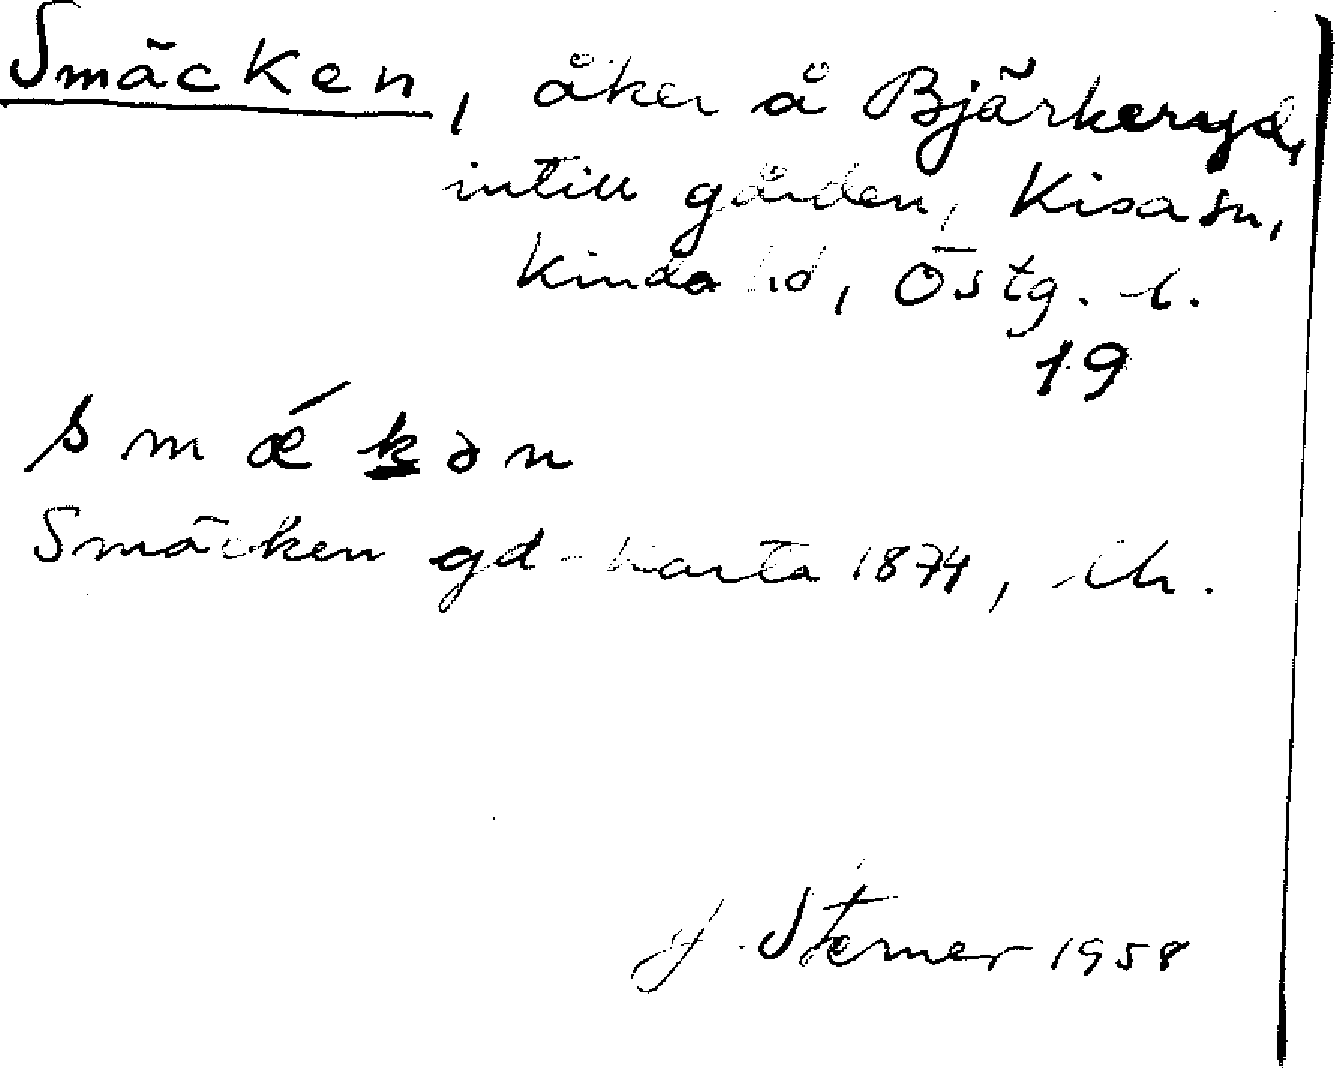 Smäcken, åker å Bjärkeryd,
intill gården, Kisa sn,
Kinda hd, Östg. l.
19
s m ǽ k ə n
Smäcken gd-karta 1874, ch.
J. Sterner 1958